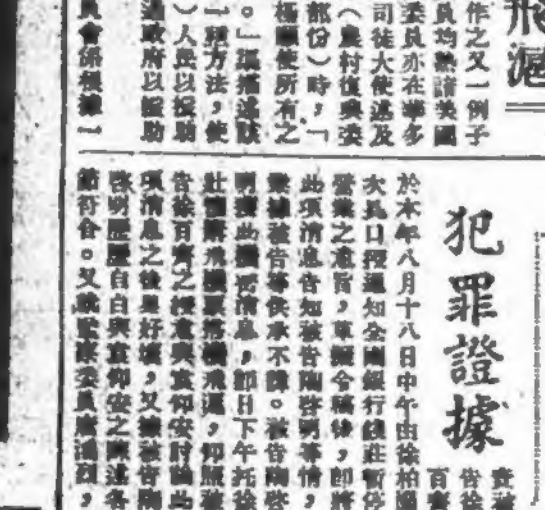 飛
作之又一例子
員均熟諳美國
委員亦在華多
司徒大使述及
(農村復興委
部份)時,「
使所有之
。」渠描述該
一種方法,使
)人民以援助
過政府以援助
員會係根據一
犯罪證據
查被
告徐
百齊
於本年八月十八日中午由徐柏園
次長口授通知全國銀行錢莊暫停
營業之意旨,草擬令稿後,即將
此項消息告知被告陶啓明等情,
業據被告等供承不諱。被告陶啓
明獲此機密消息,即日下午托徐
壯懷 飛機票搭機飛滬,仰照被
告徐百齊之授意與袁仰安討論此
項消息之後是好壞,又據被告陶
啓明歷歷自白與袁仰安之陳述各
節符合。又 監察委員 ,